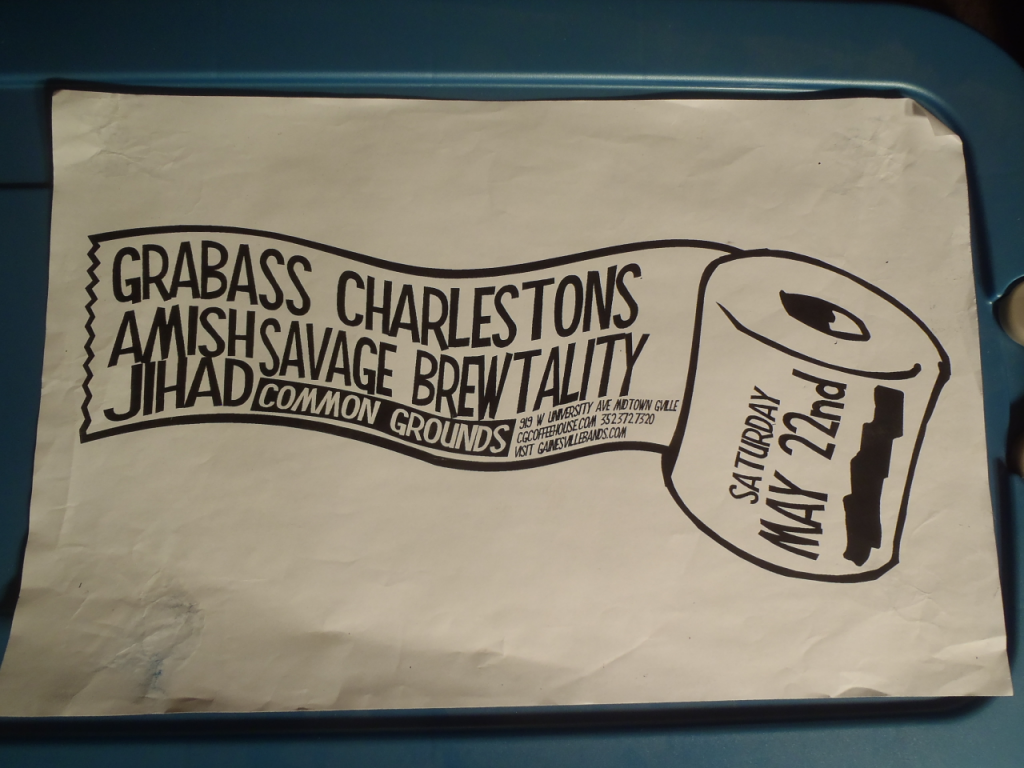 GRABASS CHARLESTONS
AMISH
JIHAD
SAVAGE BREWTALITY
COMMON GROUNDS
919 W UNIVERSITY AVE MIDTOWN GVILLE
CGCOFFEEHOUSE.COM 352.372.7320
VISIT GAINESVILLEBANDS.COM
SATURDAY
MAY 22nd